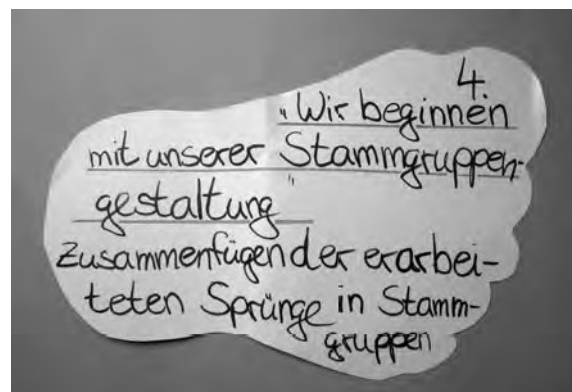 4.
„Wir beginnen
mit unserer Stammgruppen-
gestaltung"
Zusammenfügen der erarbei-
teten Sprünge in Stamm-
gruppen